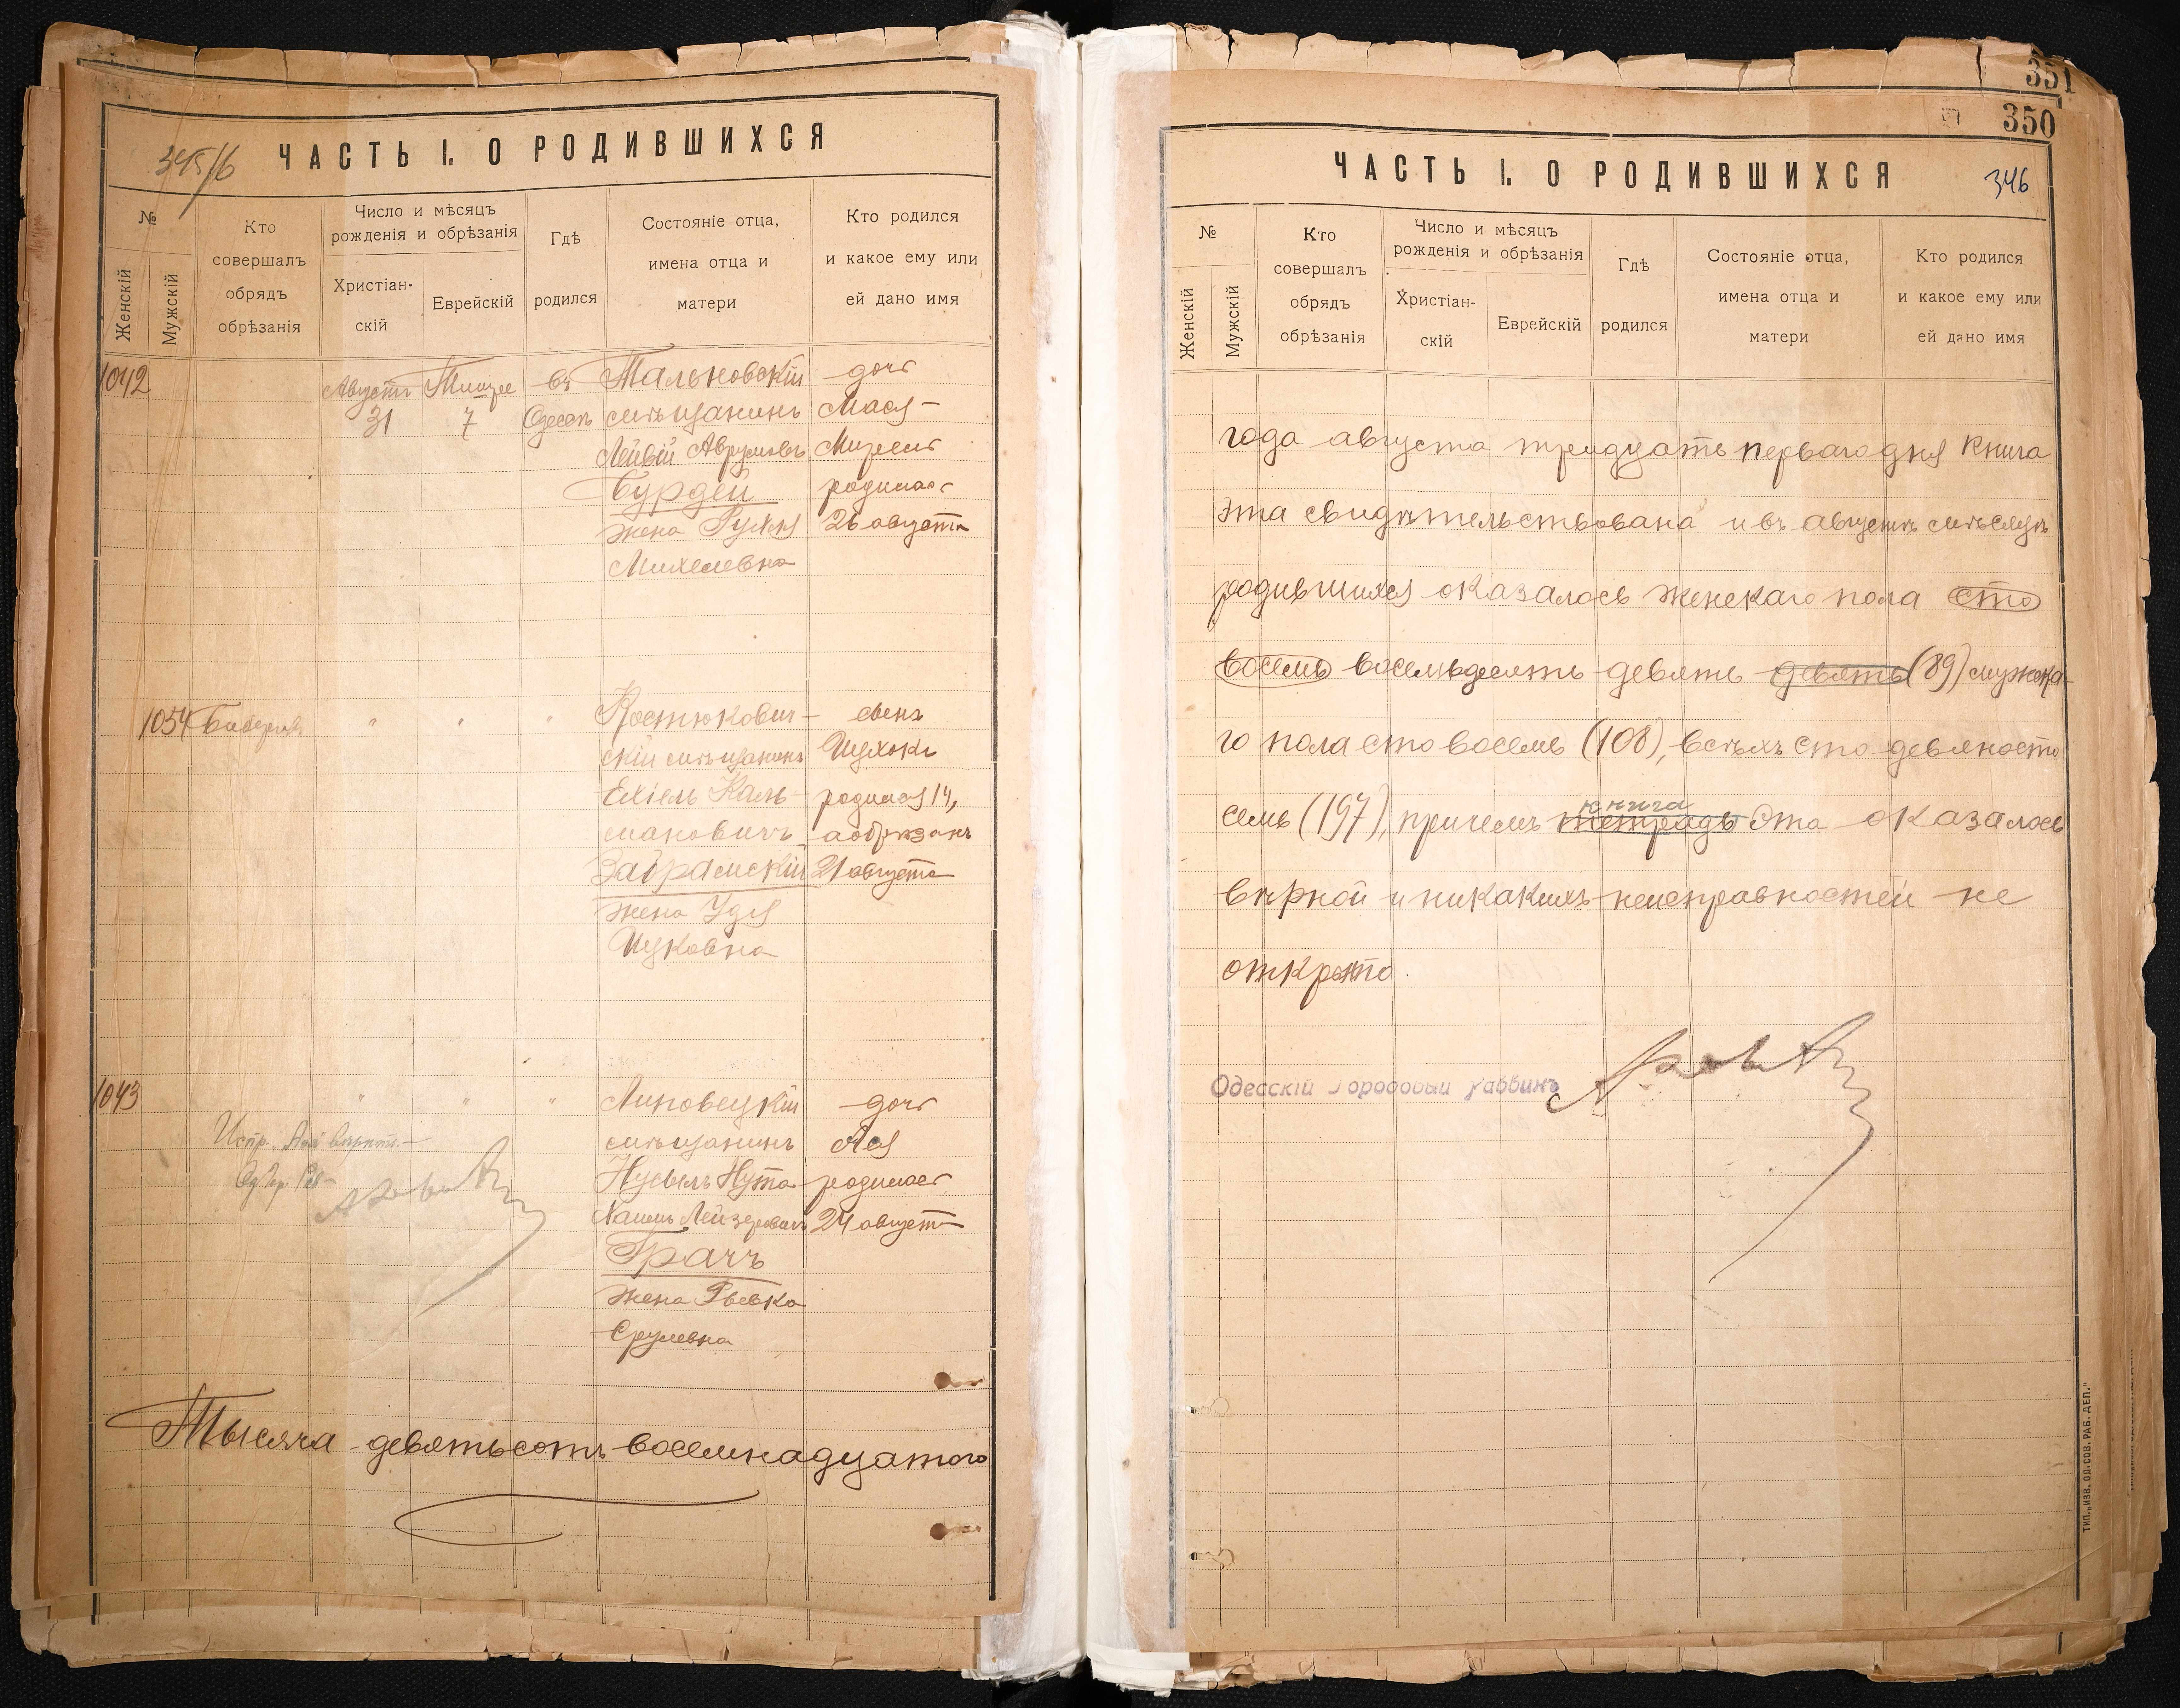 345/6
ЧАСТЬ I. О РОДИВШИХСЯ
№
Женскій
Мужскій
Кто
совершалъ
обрядъ
обрѣзанія
Число и мѣсяцъ
рожденія и обрѣзанія
Христіан-
скій
Еврейскій
Гдѣ
родился
Состояніе отца,
имена отца и
матери
Кто родился
и какое ему или
ей дано имя
1042
Августъ
31
7
въ
Одессѣ
Тальновскій
мѣщанинъ
Лейвій Аврумовъ
Бурдей
жена Рухля
Михелевна
дочь
Мася-
родилась
26 августа
1054
" " "
Костюкович-
скій мѣщанинъ
Ехіель Каль-
мановичъ
Заграмскій
жена Удя
Ицковна
сынъ
Ицхокъ
родился 14,
а обрѣзанъ
21 августа
1043
" " "
Липовецкій
мѣщанинъ
Нусымъ Нута
Хаимъ Лейзеровичъ
Грачъ
жена Рывка
Срулевна
дочь
Ася
родилась
24 август
Тысяча девятьсотъ восемнадцатаго
351
350
346
ЧАСТЬ I. О РОДИВШИХСЯ
№
Женскій
Мужскій
Кто
совершалъ
обрядъ
обрѣзанія
Число и мѣсяцъ
рожденія и обрѣзанія
Христіан-
скій
Еврейскій
Гдѣ
родился
Состояніе отца,
имена отца и
матери
Кто родился
и какое ему или
ей дано имя
года августа тридцать перваго дня книга
эта свидѣтельствована и въ августѣ мѣсяцѣ
родившихся оказалось женскаго пола сто
восемь восемьдесятъ девять девять (89) мужска-
го пола сто восемь (108), всѣхъ сто девяносто
семь (197), причемъ тетрадь книга эта оказалось
вѣрной и никакихъ неисправностей не
открыто.
Одесскій Городовой Раввинъ
ТИП. „ИЗВ. ОД. СОВ. РАБ. ДЕП."